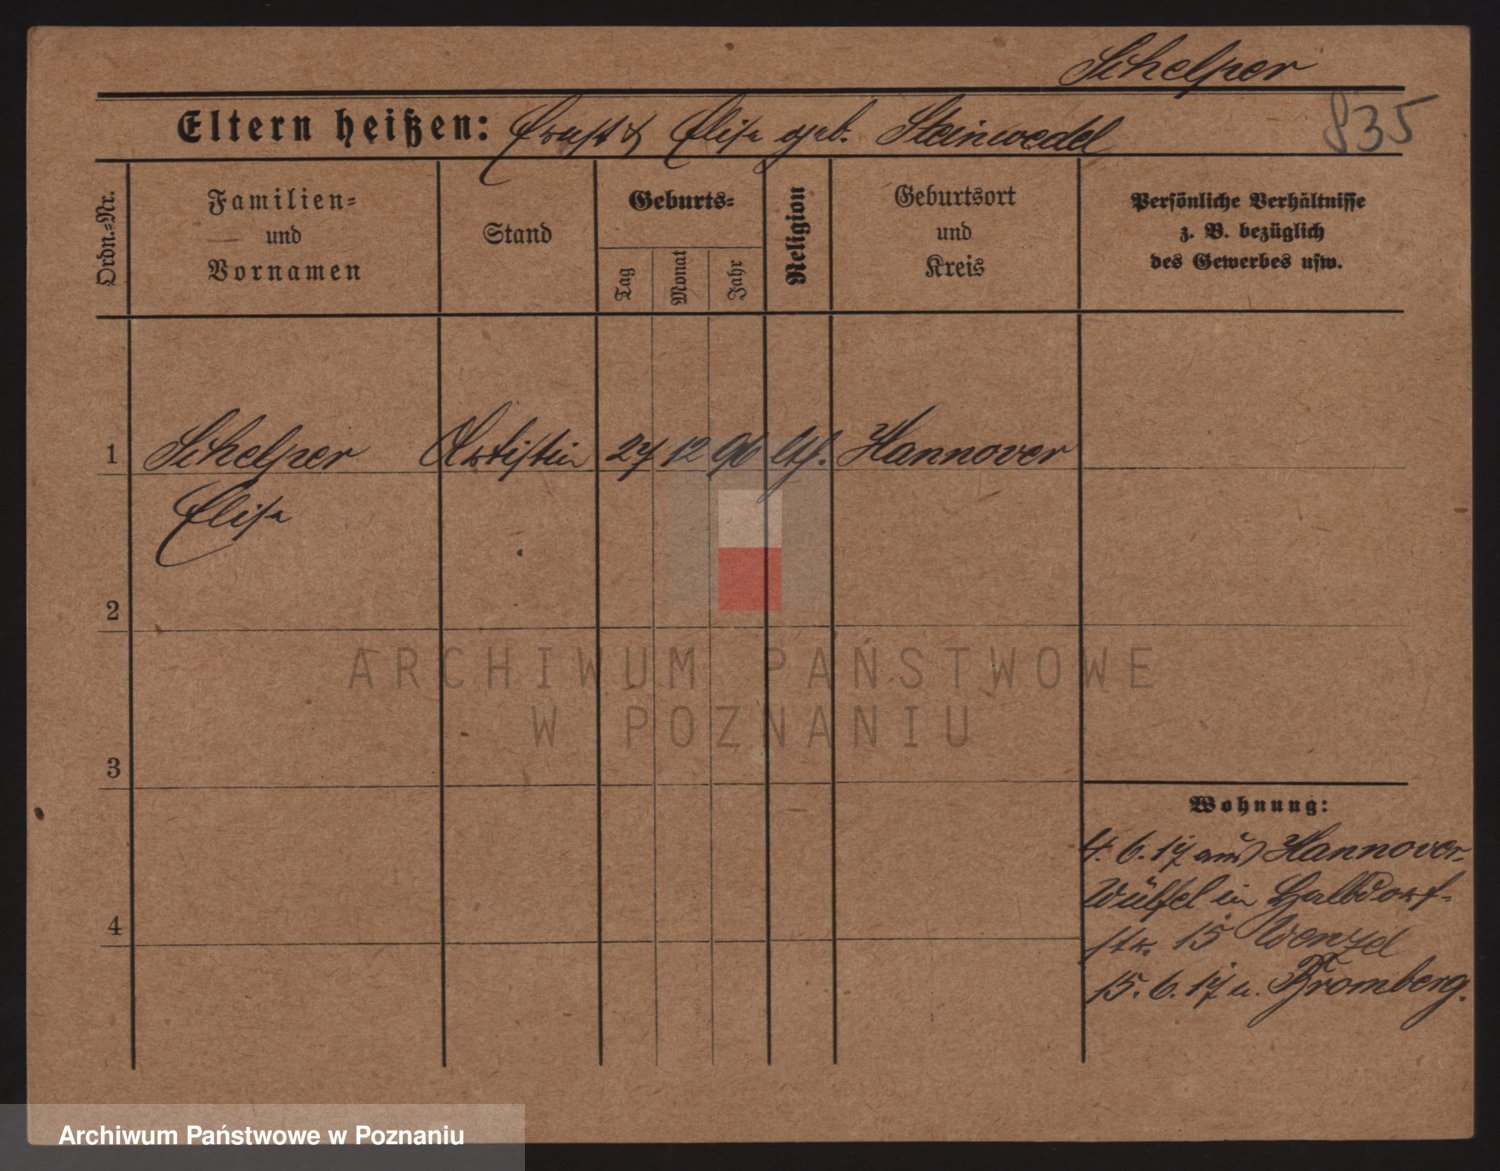 Schelper
835
Eltern heißen: Ernst & Elise geb. Steinwedel
Ordn.-Nr.
Familien-
und
Vornamen
Stand
Geburts-
Tag
Monat
Jahr
Religion
Geburtsort
und
Kreis
Persönliche Verhältnisse
z. B. bezüglich
des Gewerbes usw.
1 Schelper Artistin 27 12 96 Hannover
Elise
2
3
4
Wohnung:
4. 6. 17 aus Hannover-
Wülfel in Halbdorf-
str. 15 Wenzel
15. 6. 17 n. Bromberg.
ARCHIWUM PAŃSTWOWE
W POZNANIU
Archiwum Państwowe w Poznaniu